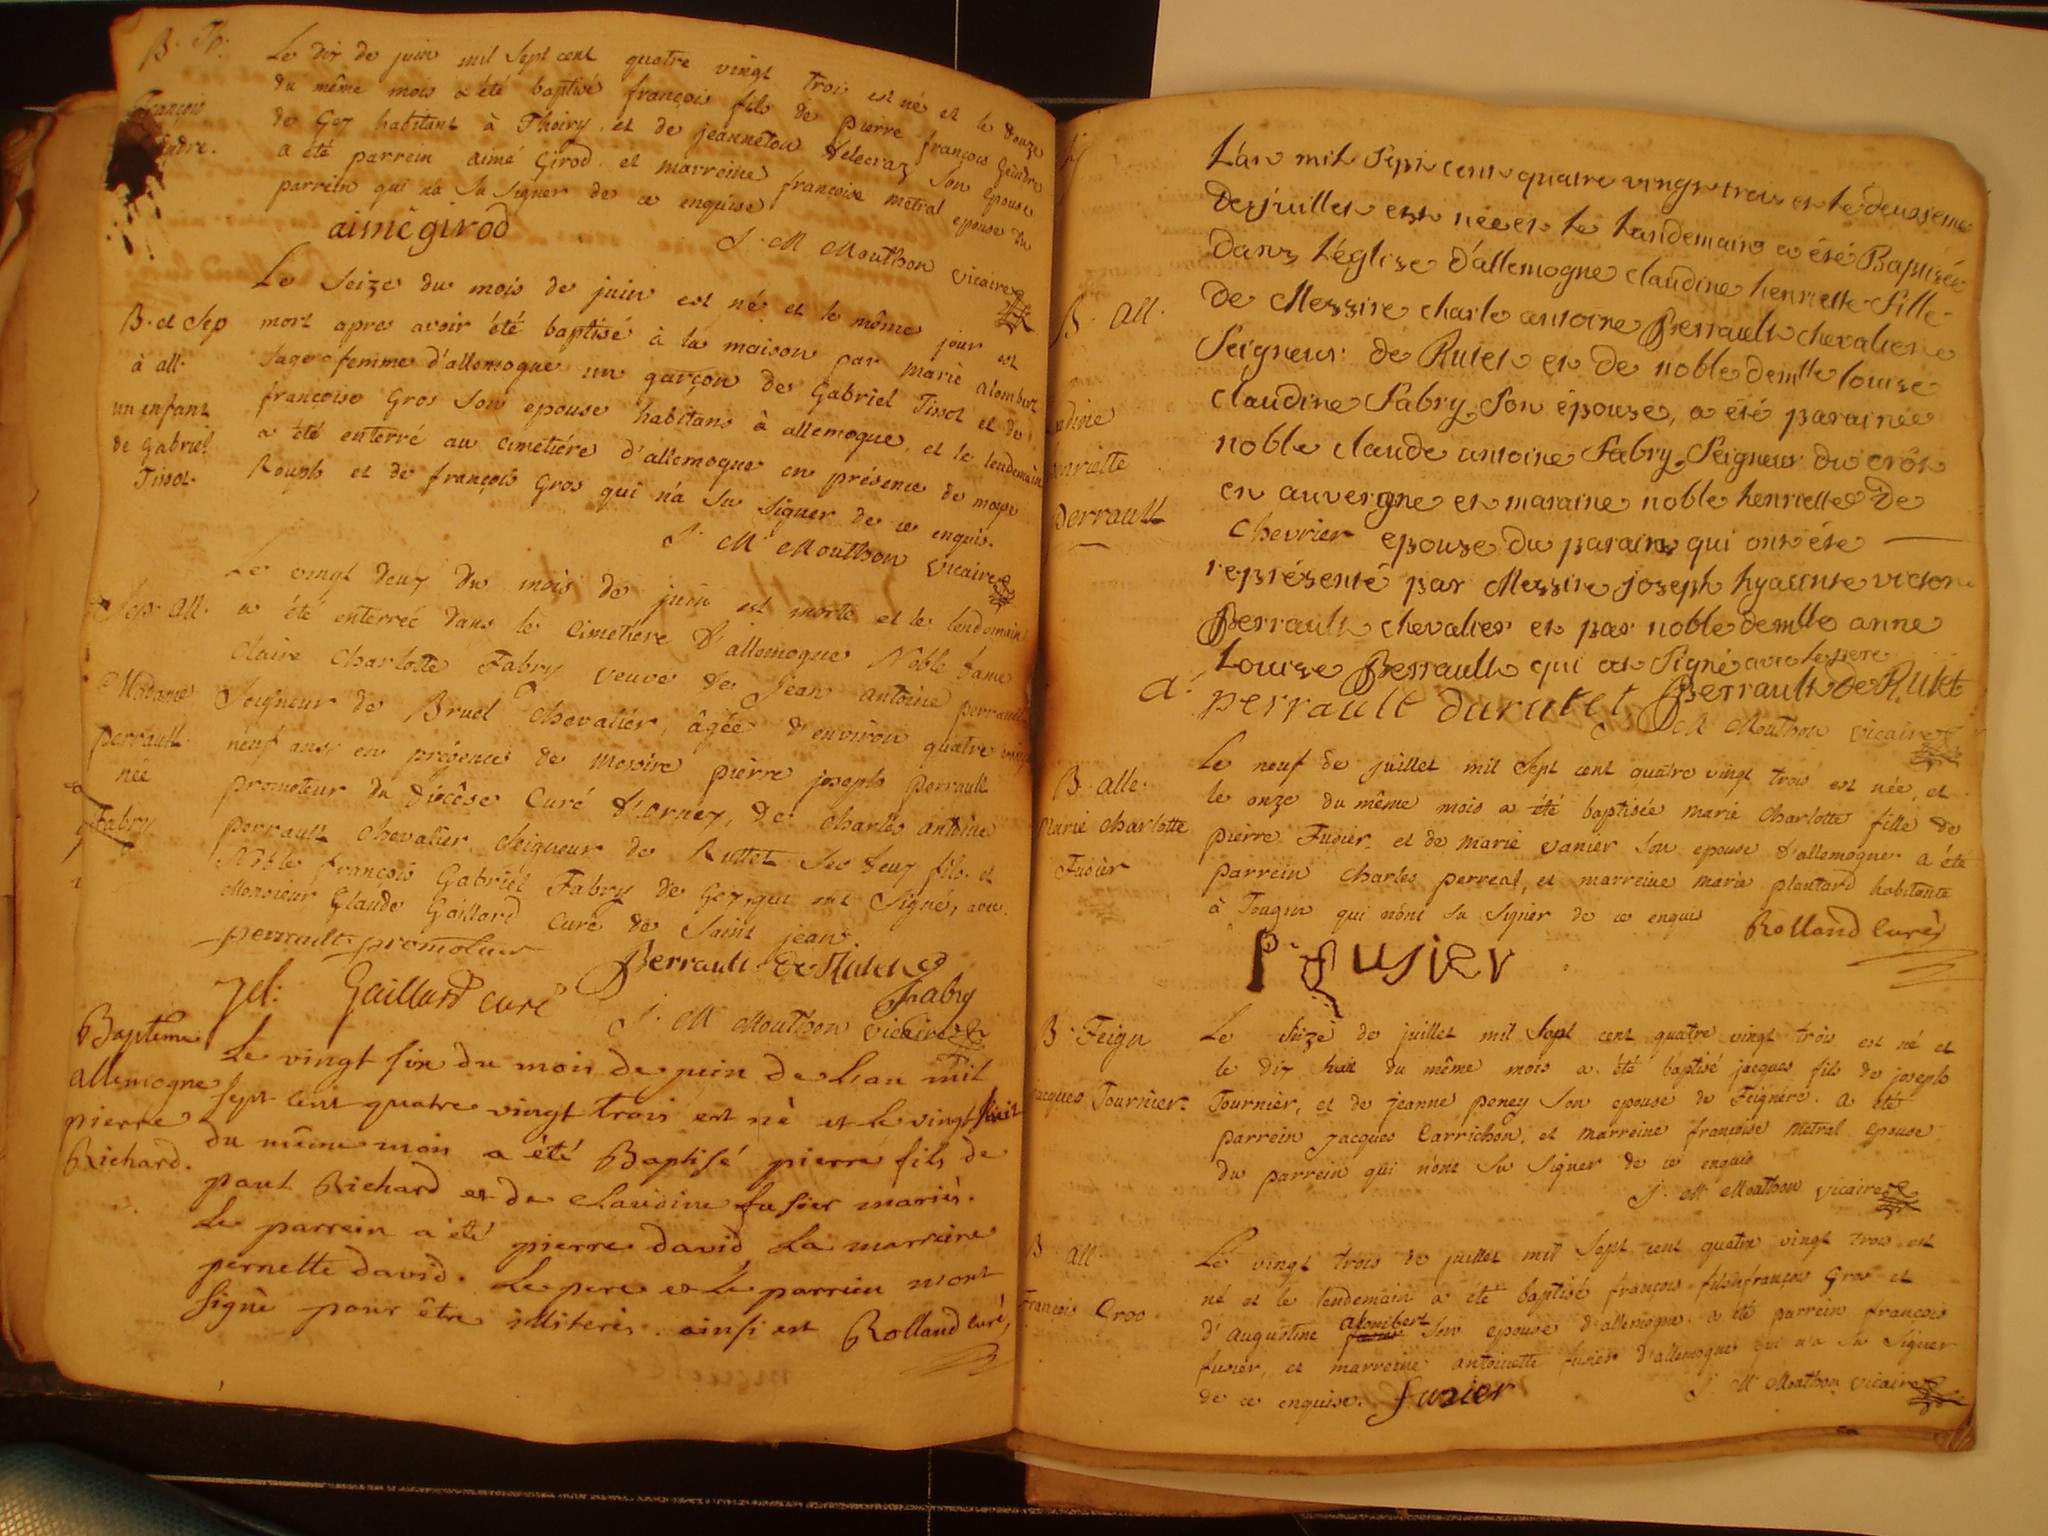 B. Th.
françois
Gindre.
Le dix de juin mil sept cent quatre vingt trois est né et le douze
du même mois a été baptisé françois fils de pierre françois Gindre
de Gex habitant à Thoiry et de jeanneton Delecraz son epouse
a été parrein aimé Girod et marreine françoise metral epouse du
parrein qui n'a su signer de ce enquise
aimé girod
J. M Mouthon vicaire
B. et Sep
à all.
un enfant
de Gabriel
Tissot.
Le seize du mois de juin est né et le même jour est
mort apres avoir été baptisé à la maison par marie alombert
sage femme d'allemogne un garçon de Gabriel Tissot et de
françoise Gros son epouse habitans à allemogne, et le lendemain
a été enterré au cimetiére d'allemogne en présence de moyse
Rouph et de françois Gros qui n'a su signer de ce enquis.
J. M Mouthon vicaire
Sep. all.
Madame
perrault
née
Fabry
Le vingt deux du mois de juin est morte et le lendemain
a été enterreé dans le cimetiere d'allemogne Noble Dame
Claire Charlotte Fabry veuve de Jean antoine perrault
Seigneur de Bruel Chevalier, âgée d'environ quatre vingt
neuf ans en présence de messire pierre joseph perrault
promoteur du diocèse Curé d'ornex, de charles antoine
perrault chevalier seigneur de Ruttet ses deux fils et
Noble françois Gabriel Fabry de Gex, qui ont signé, avec
Monsieur Glaude Gaillard curé de Saint jean
perrault promoteur
Perrault de Rutet
Gaillard curé
Fabry
J. M Mouthon vicaire
Baptême
allemogne
pierre
Richard.
Le vingt six du mois de juin de l'an mil
sept cent quatre vingt trois est né et le vingt huit
du même mois a été Baptisé pierre fils de
paul Richard et de Claudine fusier mariés.
Le parrein a été pierre david La marreine
pernette david. Le pere et le parrein n'ont
signé pour être illiterés. ainsi est Rolland curé
B. all.
henriette
perrault
L'an mil sept cent quatre vingt trois et le deuxseme
de juillet est née et le landemain a été Baptisée
dans l'églize d'allemogne claudine henriette fille
de Messire charle antoine Perrault chevalier
seigneur de Rutet et de noble demlle louise
claudine Fabry son épouze, a été parainée
noble claude antoine Fabry Seigneur du crôt
en auvergne et maraine noble henriette de
chevrier epouze du parain qui ont été
représenté par Messire joseph hyacinte victor
Perrault chevalier et par noble demlle anne
Louise Perrault qui ont signé avec le pere
a. perrault du rutet Perrault de Rutet
J. M Mouthon vicaire
B. alle.
Marie charlotte
Fusier
Le neuf de juillet mil sept cent quatre vingt trois est née, et
le onze du même mois a été baptisée marie charlotte fille de
pierre Fusier et de marie vanier son epouse d'allemogne. a été
parrein charles perreal, et marreine marie plantard habitante
à Tougin qui n'ont su signer de ce enquis Rolland Curé
P. fusier
B. Feign
jacques Tournier.
Le seize de juillet mil sept cent quatre vingt trois est né et
le dix huit du même mois a été baptisé jacques fils de joseph
Tournier, et de jeanne peney son epouse de Feignére. a été
parrein jacques Carrichon, et marreine françoise metral epouse
du parrein qui n'ont su signer de ce enquis
J. M Mouthon vicaire
B. all.
françois Gros
Le vingt trois de juillet mil sept cent quatre vingt trois est
né et le lendemain a été baptisé françois fils de françois Gros et
d'augustine alombert son epouse d'allemogne. a été parrein françois
fusier, et marreine antoinette fusier d'allemogne qui n'a su signer
de ce enquise. fusier
J. M Mouthon vicaire